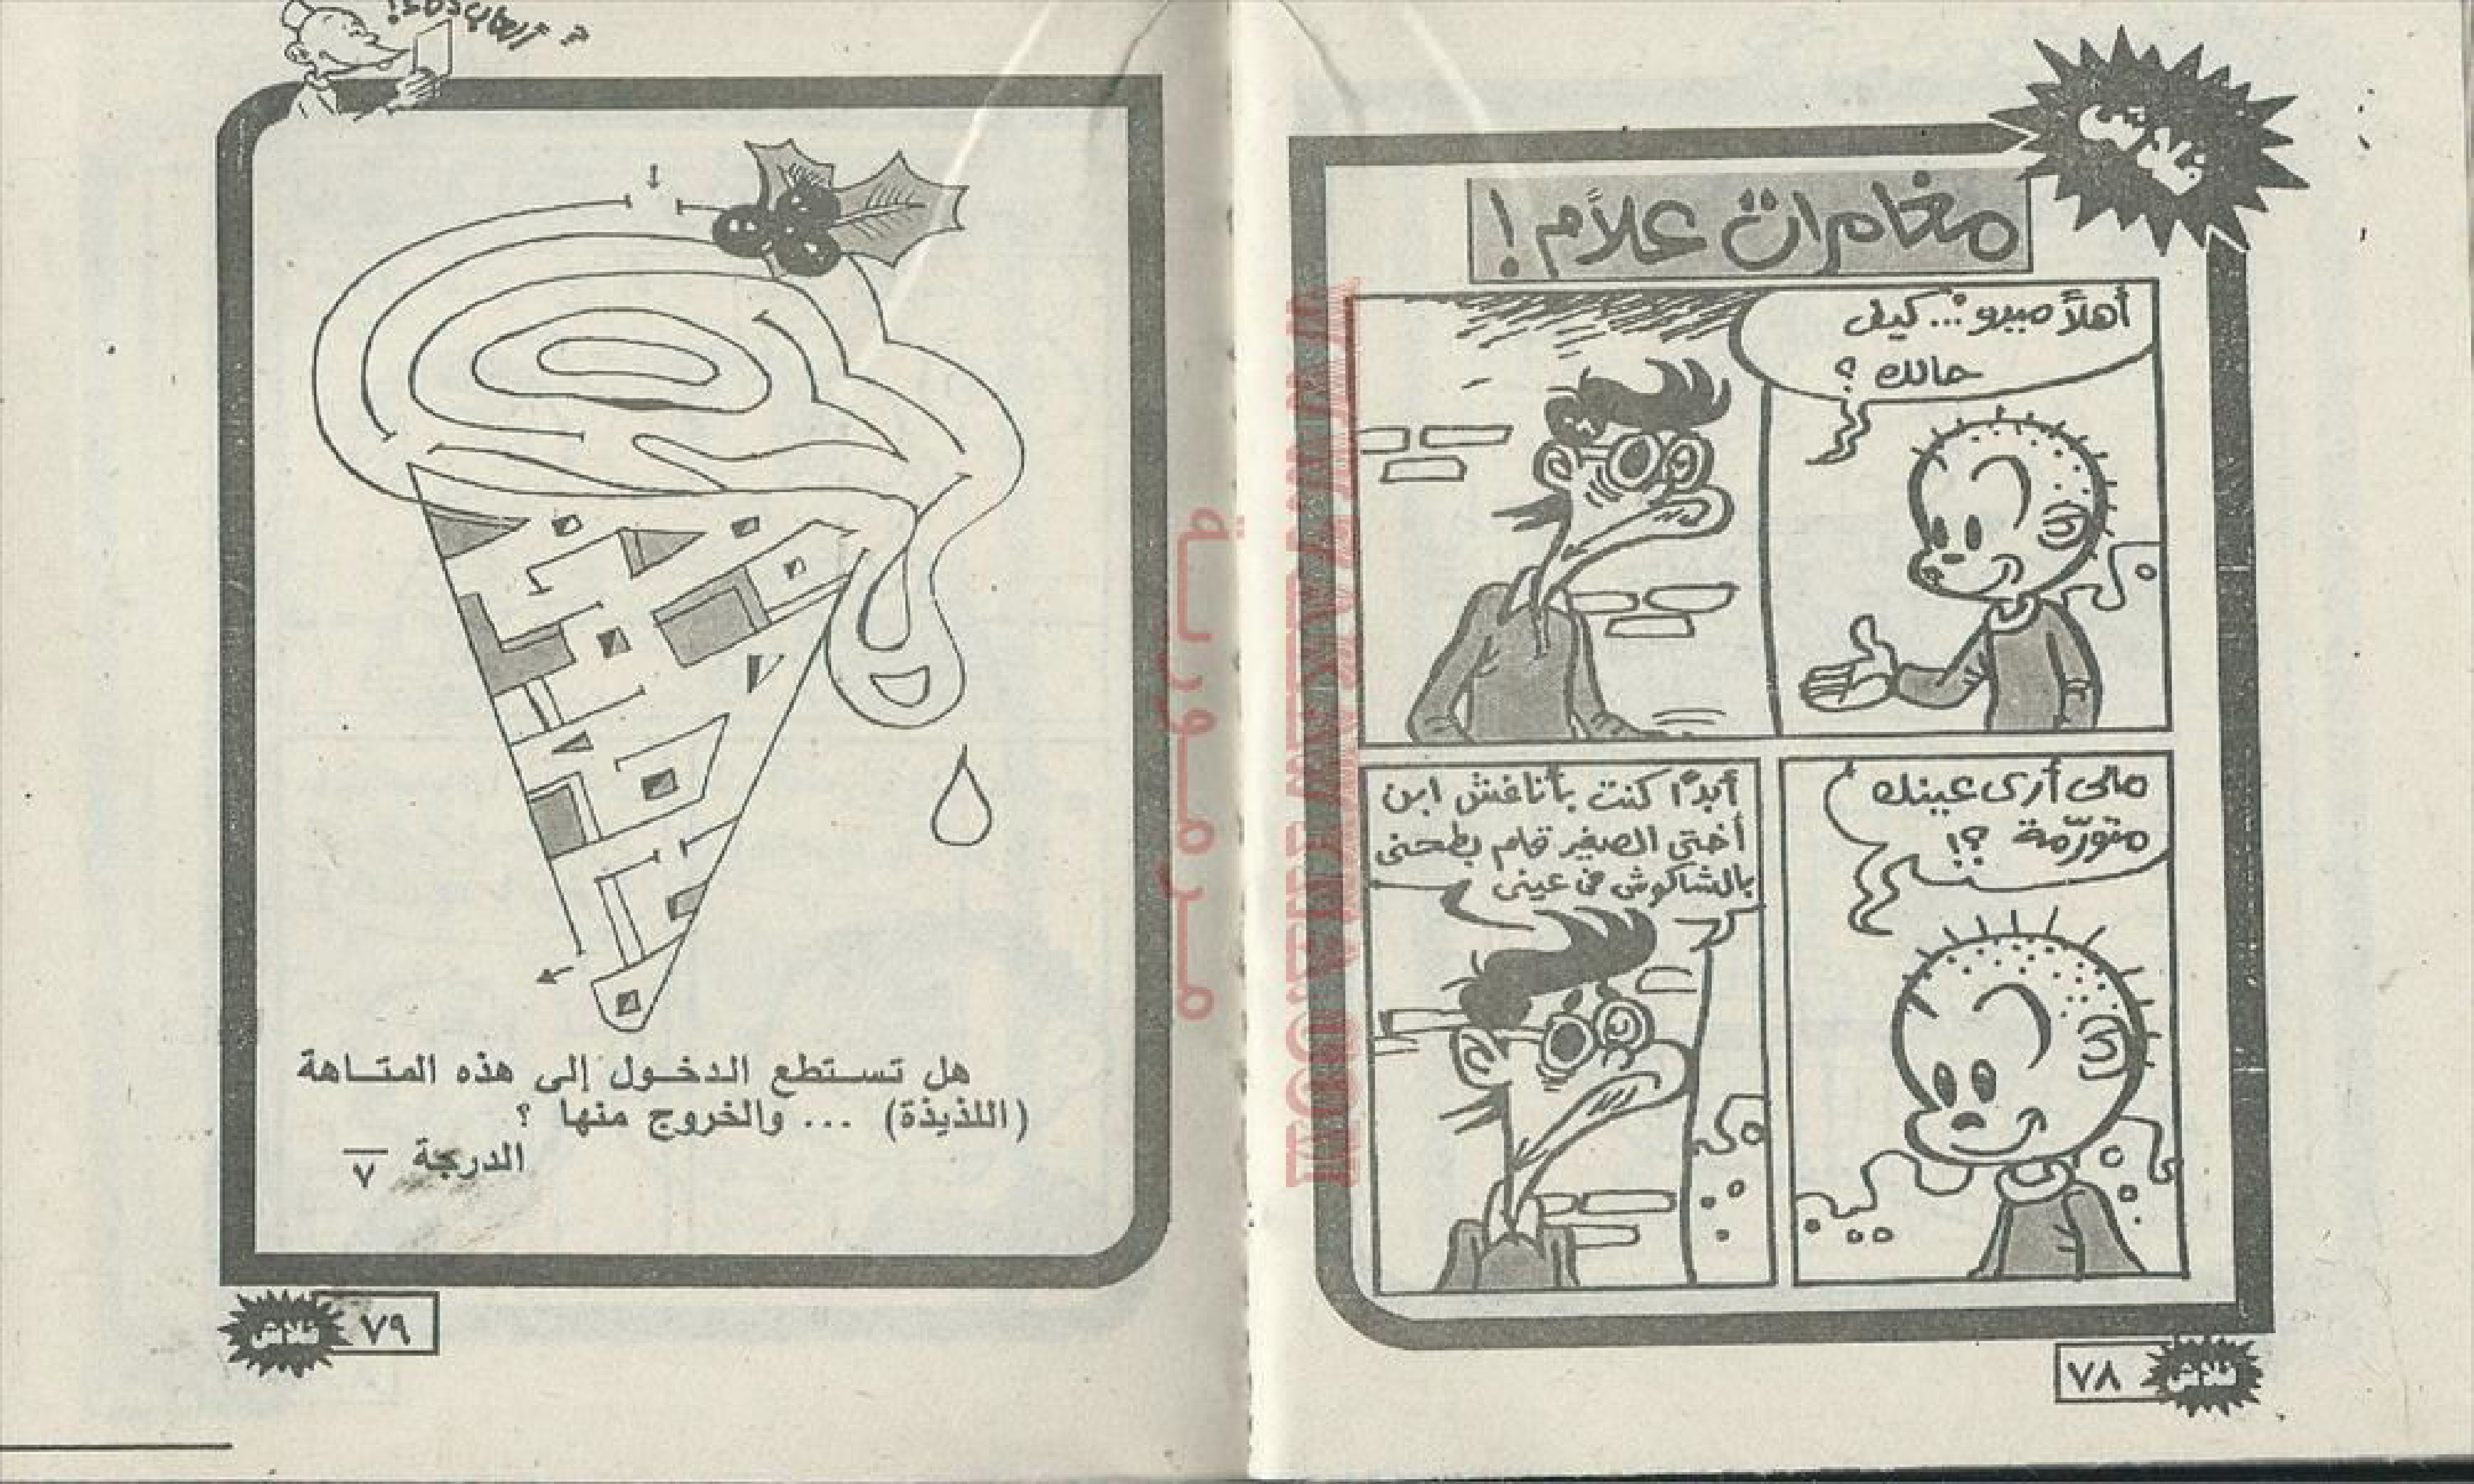 فلاش
مغامرات علام !
أهلاً صبرو... كيف
حالك ؟
مالى أرى عينك
متورّمة ؟!
أبدًا كنت بأناغش ابن
أختى الصغير قام بطحنى
بالشاكوش فى عينى
٧٨
فلاش
هل تستطع الدخول إلى هذه المتاهة
(اللذيذة) ... والخروج منها ؟
الدرجة ٧
٧٩
فلاش
مرمورية